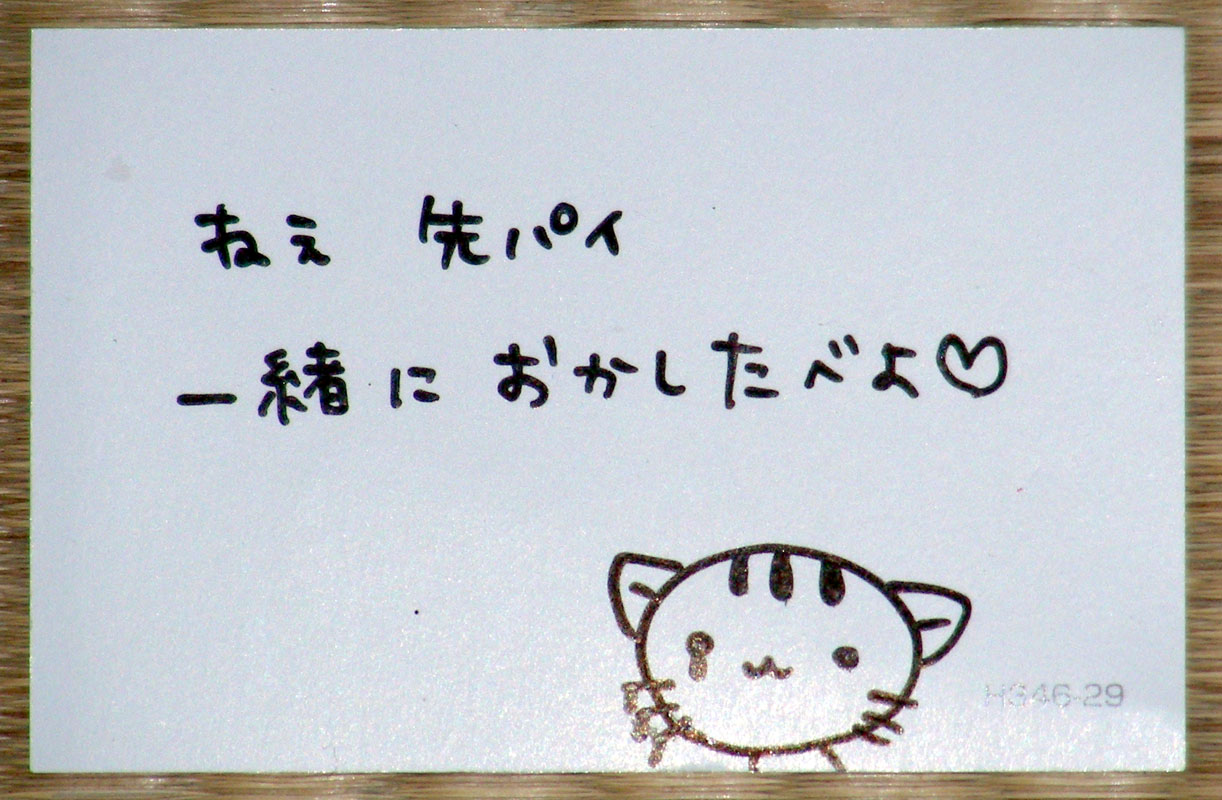 ねえ 先パイ
一緒に おかしたべよ♡
H346-29